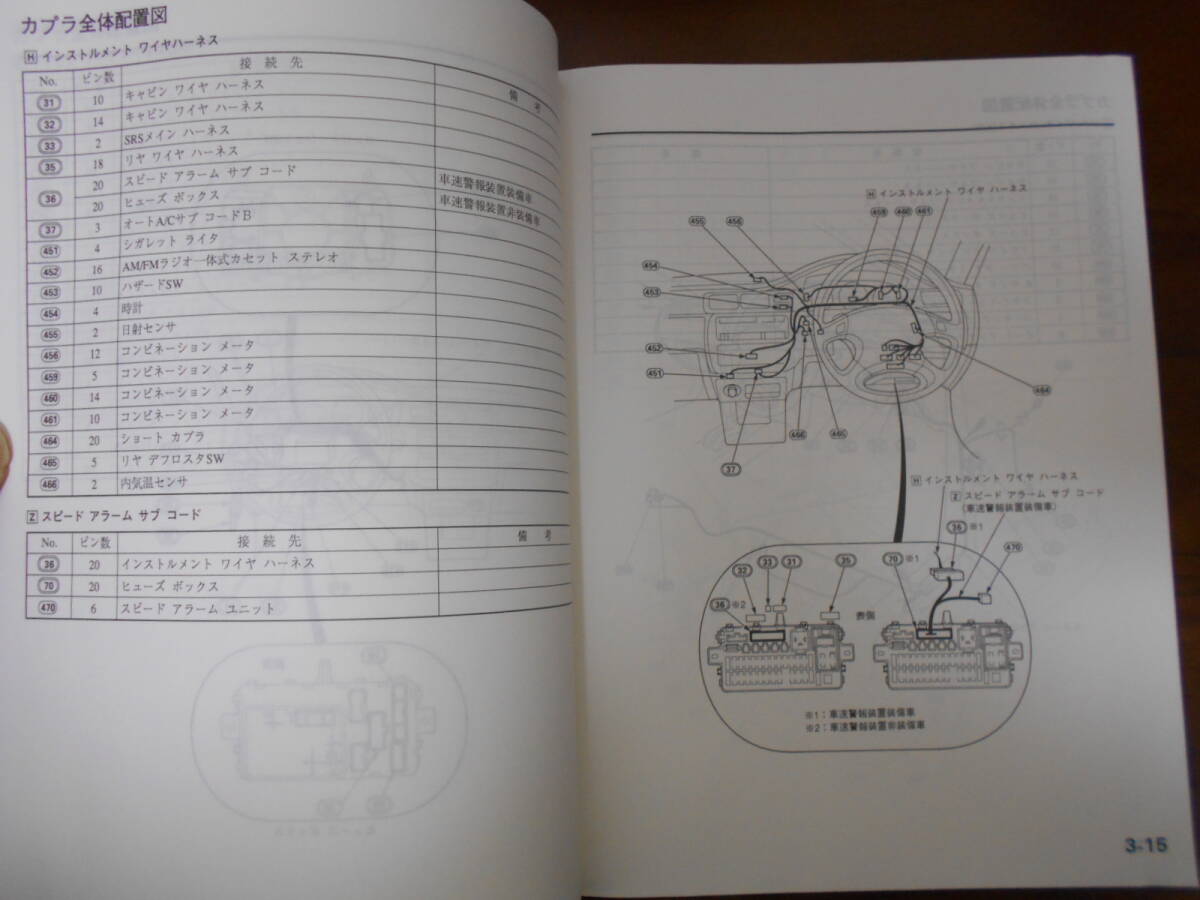 カプラ全体配置図
H インストルメント ワイヤハーネス
No. ピン数 接続先 備考
31 10 キャビン ワイヤ ハーネス
32 14 キャビン ワイヤ ハーネス
33 2 SRSメイン ハーネス
35 18 リヤ ワイヤ ハーネス
36 20 スピード アラーム サブ コード 車速警報装置装備車
20 ヒューズ ボックス 車速警報装置非装備車
37 3 オートA/Cサブ コードB
451 4 シガレット ライタ
452 16 AM/FMラジオ一体式カセット ステレオ
453 10 ハザードSW
454 4 時計
455 2 日射センサ
456 12 コンビネーション メータ
459 5 コンビネーション メータ
460 14 コンビネーション メータ
461 10 コンビネーション メータ
464 20 ショート カプラ
465 5 リヤ デフロスタSW
466 2 内気温センサ
Z スピード アラーム サブ コード
No. ピン数 接続先 備考
36 20 インストルメント ワイヤ ハーネス
70 20 ヒューズ ボックス
470 6 スピード アラーム ユニット
H インストルメント ワイヤ ハーネス
455 456 459 460 461
454
453
452
451
464
466 465
37
H インストルメント ワイヤ ハーネス
Z スピード アラーム サブ コード
(車速警報装置装備車)
36 ※1
470
32 33 31 35 70 ※1
36 ※2
表側
※1：車速警報装置装備車
※2：車速警報装置非装備車
3-15